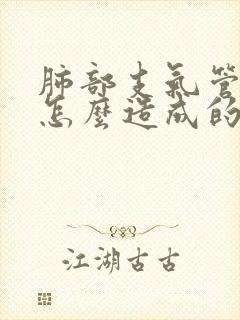 肺部支氣管
怎麼造成的
江湖古古